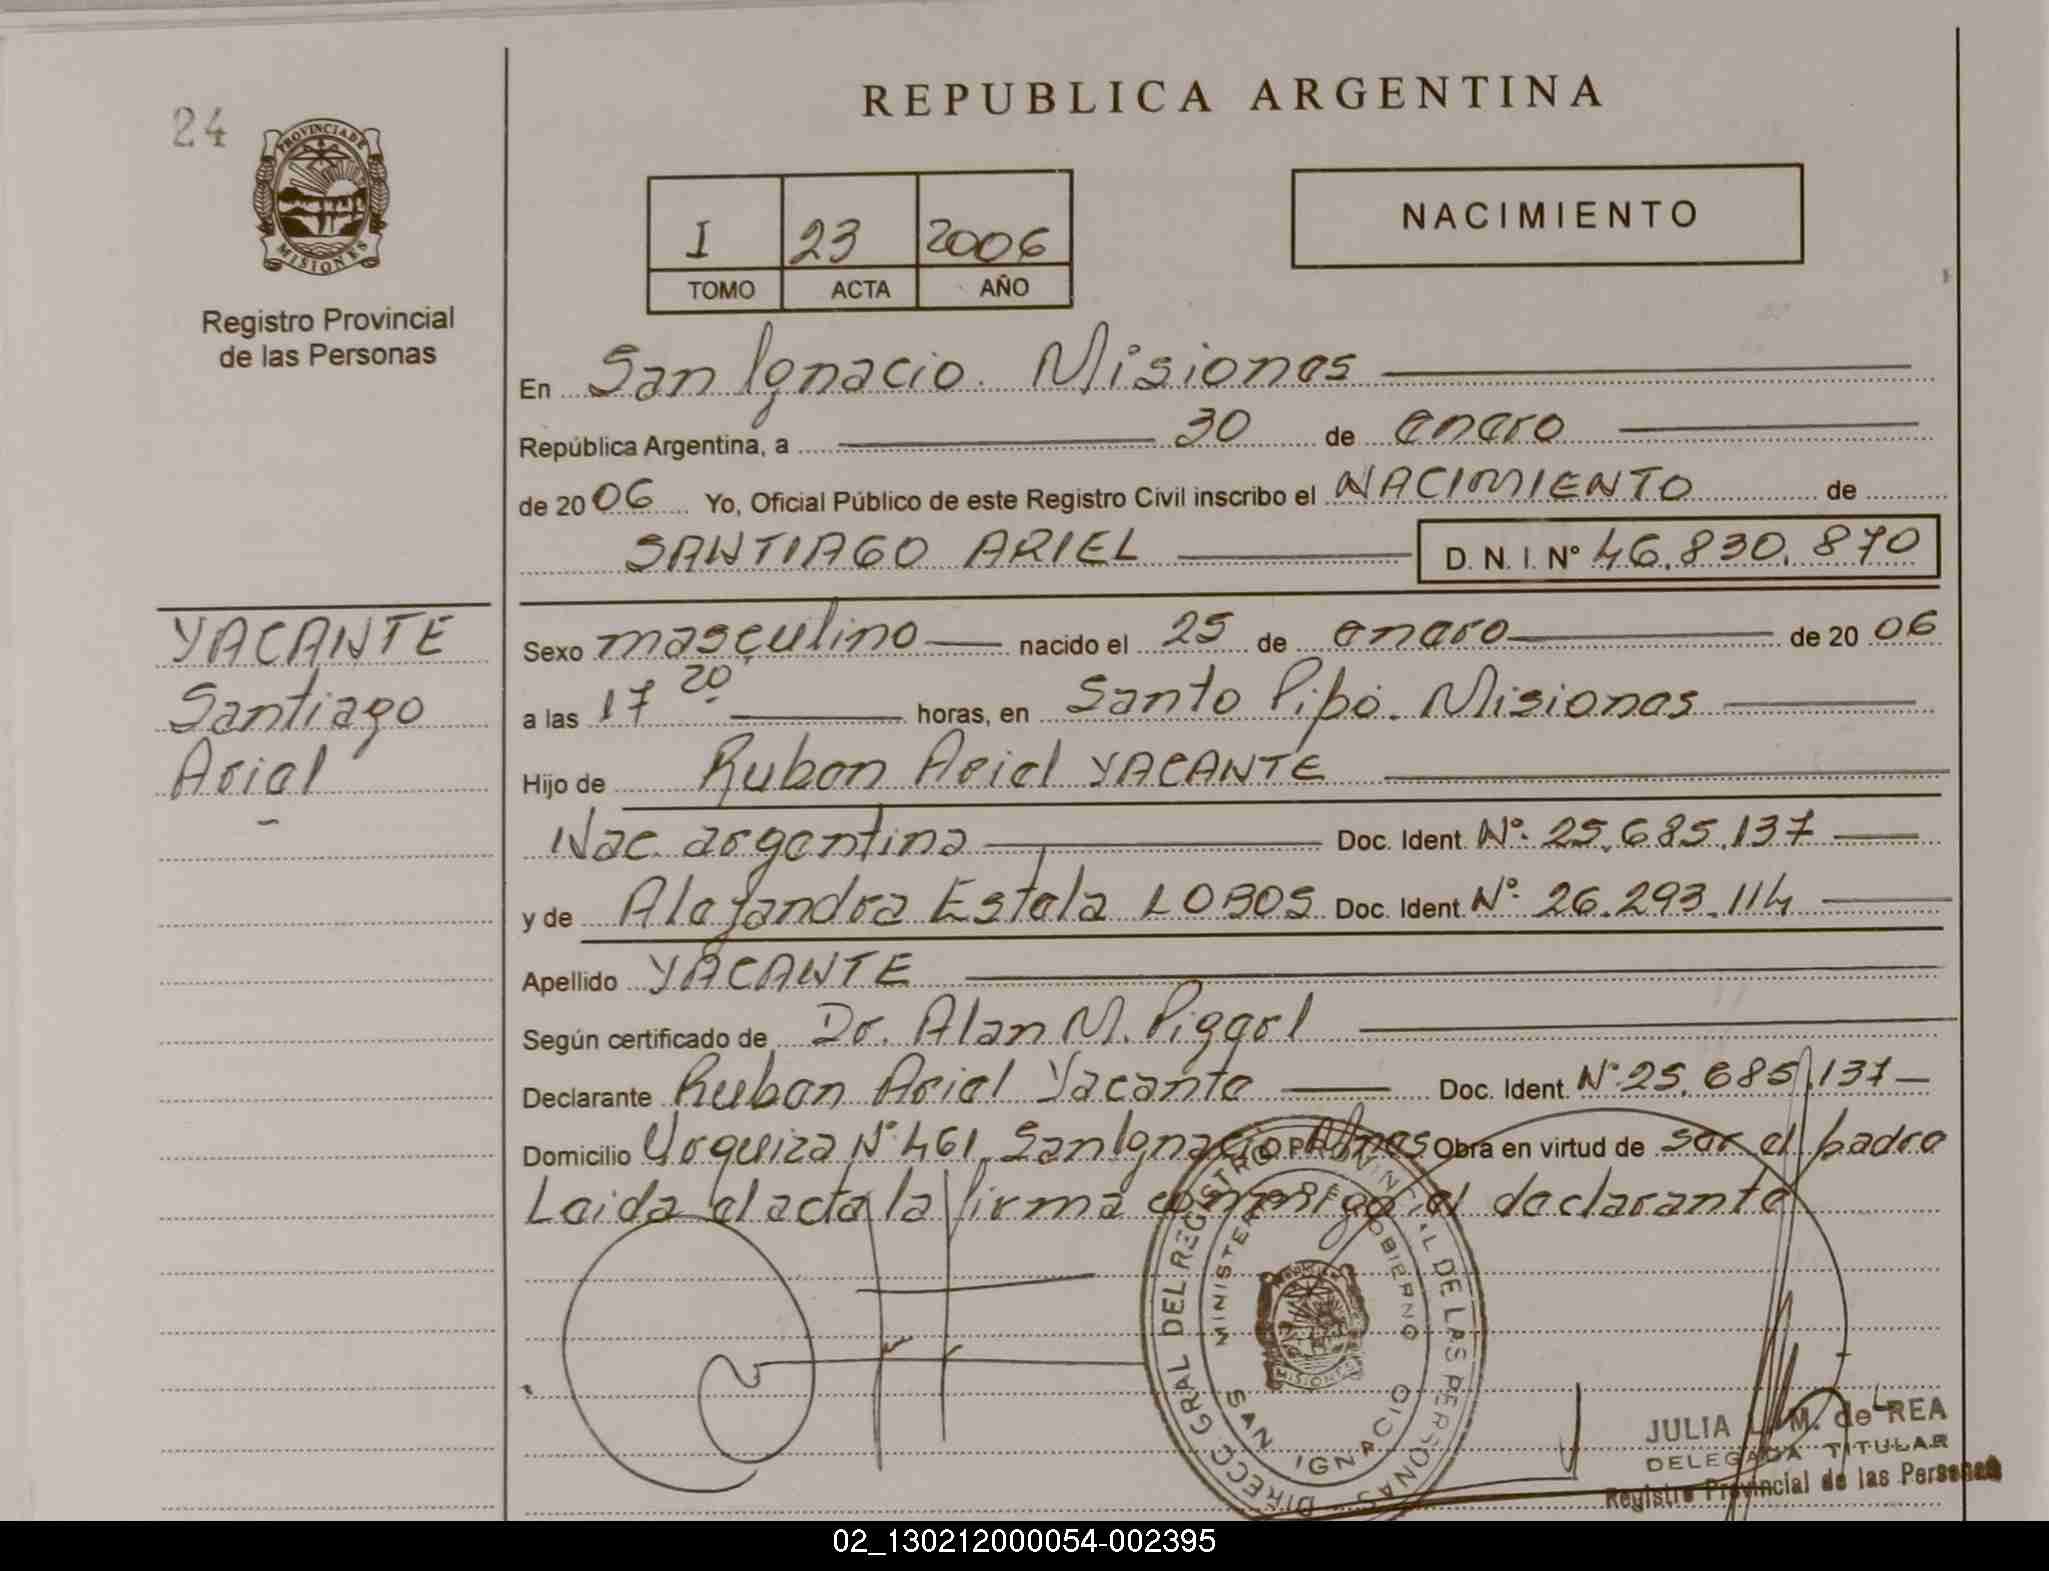 24
PROVINCIA DE
MISIONES
Registro Provincial
de las Personas
REPUBLICA ARGENTINA
I 23 2006
TOMO ACTA AÑO
NACIMIENTO
En San Ignacio. Misiones
República Argentina, a 30 de enero
de 2006 Yo, Oficial Público de este Registro Civil inscribo el NACIMIENTO de
SANTIAGO ARIEL D. N. I. Nº 46.830.870
YACANTE
Santiago
Ariel
Sexo masculino nacido el 25 de enero de 2006
a las 17 20 horas, en Santo Pipó. Misiones
Hijo de Ruben Ariel YACANTE
Nac. argentina Doc. Ident. Nº. 25.685.137
y de Alejandra Estela LOBOS Doc. Ident. Nº. 26.293.114
Apellido YACANTE
Según certificado de Dr. Alan M. Piggel
Declarante Ruben Ariel Yacante Doc. Ident. Nº 25.685.137
Domicilio Urquiza Nº 461. San Ignacio Mnes Obra en virtud de ser el padre
Leida el acta la firma conmigo el declarante
DIRECC GRAL DEL REGISTRO PROVINCIAL DE LAS PERSONAS
MINISTERIO DE GOBIERNO
MISIONES
SAN IGNACIO
JULIA L. M. de REA
DELEGADA TITULAR
Registro Provincial de las Personas
02_130212000054-002395